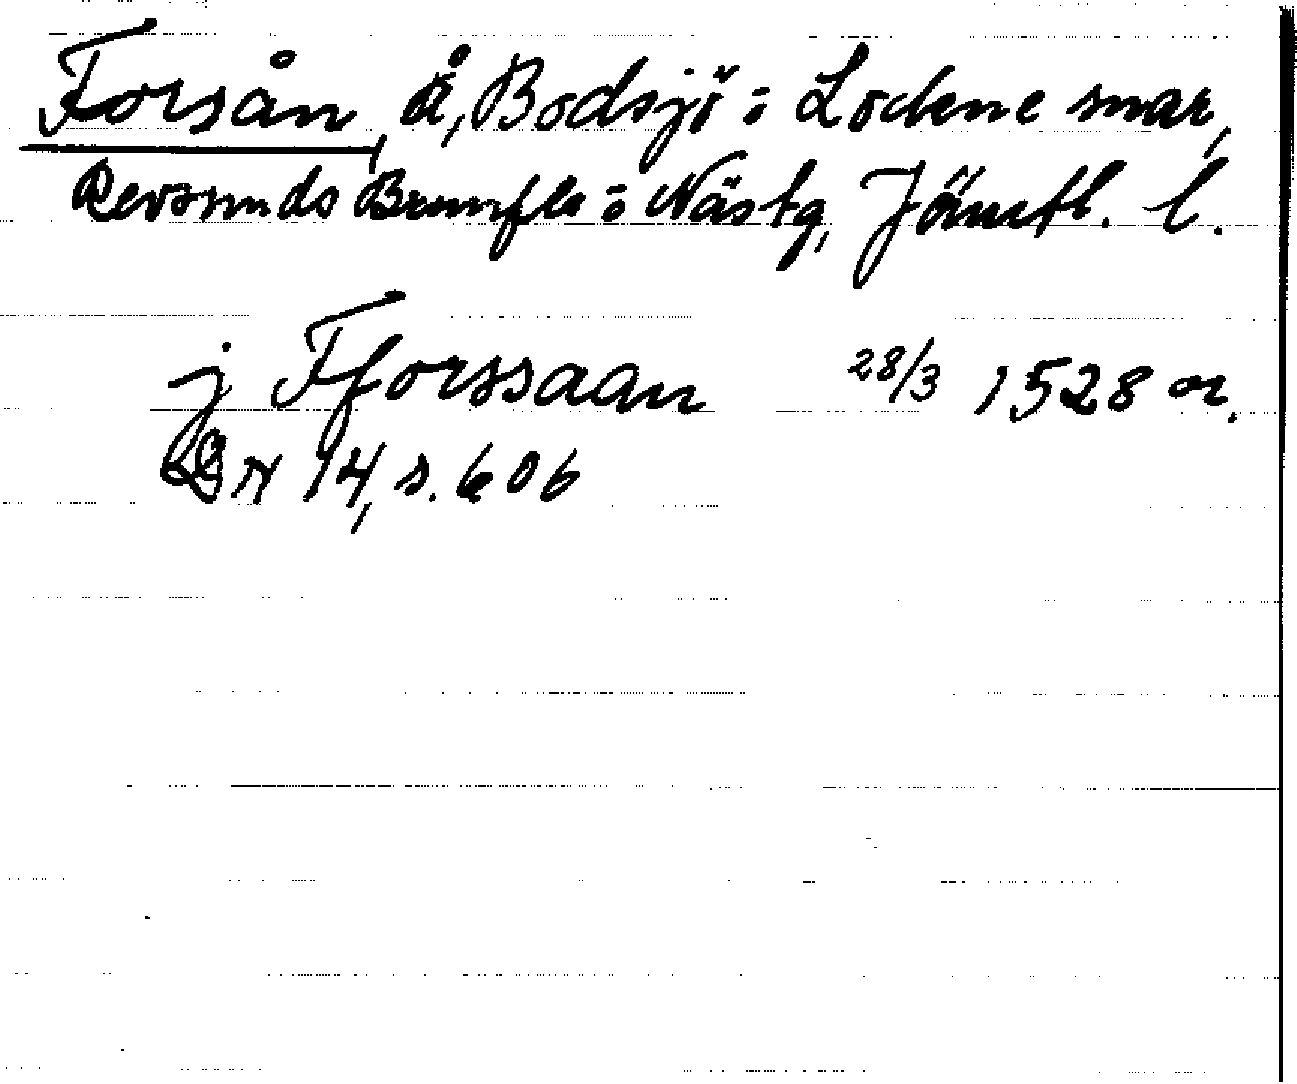 Forsån, å, Bodsjö i Lockne snar,
Revsunds Brunflo i Näs tg, Jämtl. l.
j Fforssaan 28/3 1528 or.
DN 14, s. 606